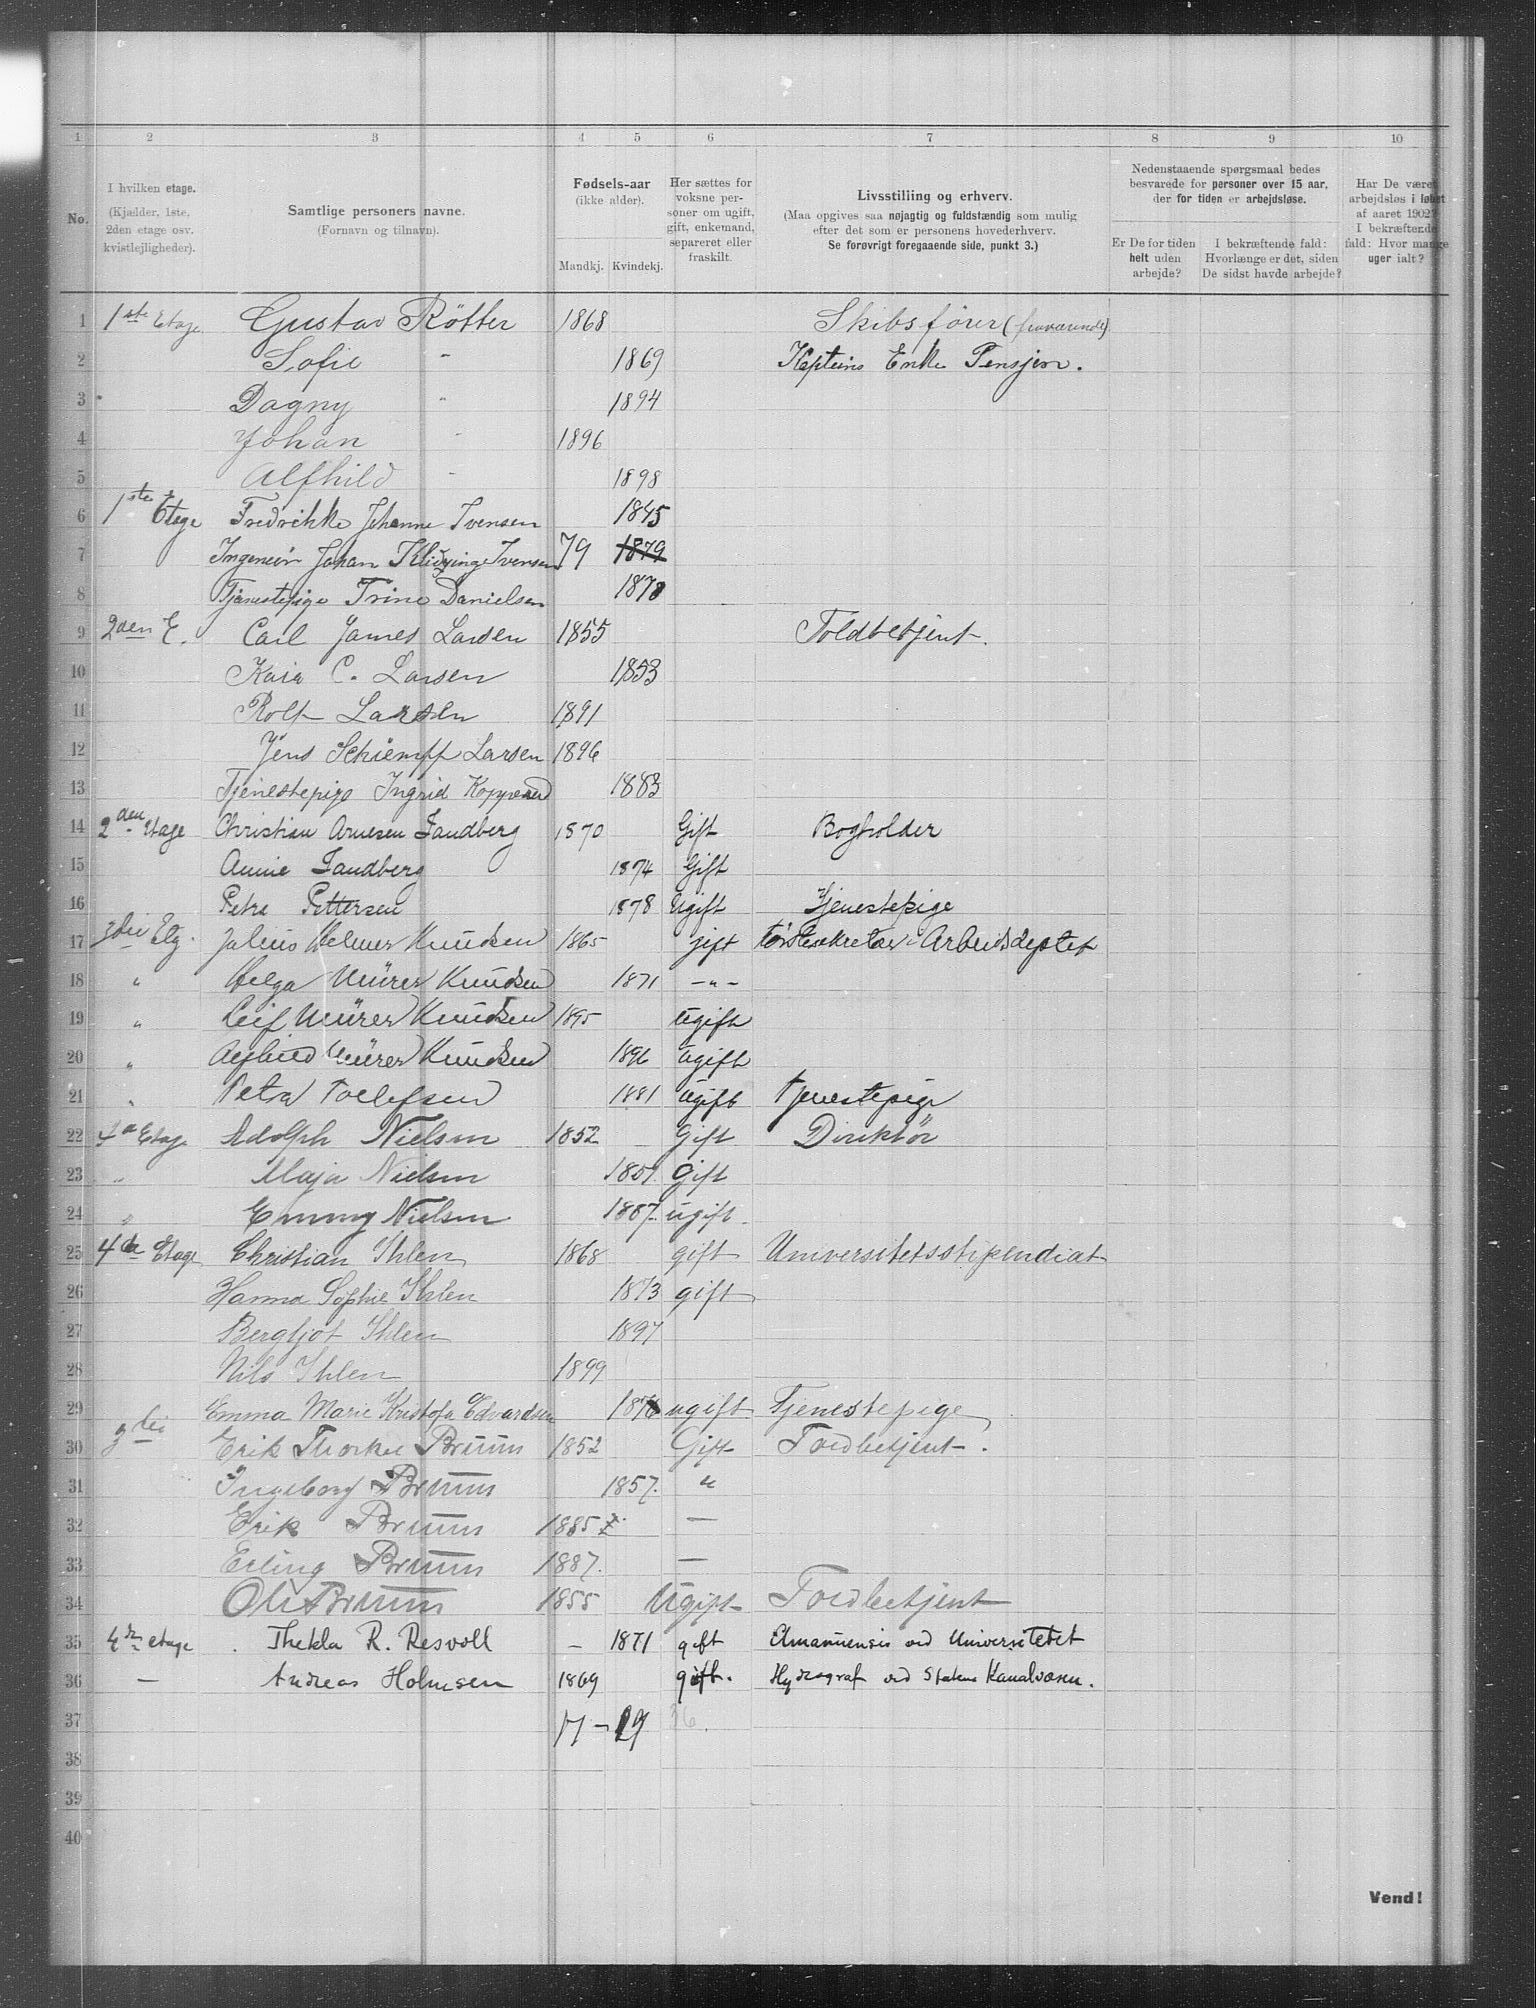 1 2 3 4 5 6 7 8 9 10
No.
I hvilken etage.
(Kjælder, 1ste,
2den etage osv.
kvistlejligheder).
Samtlige personers navne.
(Fornavn og tilnavn).
Fødsels-aar
(ikke alder).
Mandkj. Kvindekj.
Her sættes for
voksne per-
soner om ugift,
gift, enkemand,
separeret eller
fraskilt.
Livsstilling og erhverv.
(Maa opgives saa nøjagtig og fuldstændig som mulig
efter det som er personens hovederhverv.
Se forøvrigt foregaaende side, punkt 3.)
Nedenstaaende spørgsmaal bedes
besvarede for personer over 15 aar,
der for tiden er arbejdsløse.
Er De for tiden
helt uden
arbejde?
I bekræftende fald:
Hvorlænge er det, siden
De sidst havde arbejde?
Har De været
arbejdsløs i løbet
af aaret 1902?
I bekræftende
fald: Hvor mange
uger ialt?
1 1ste Etage Gustav Rötter 1868 Skibsfører (fraværende)
2 Sofie " 1869 Kapteins Enke Pensjon.
3 Dagny " 1894
4 Johan " 1896
5 Alfhild " 1898
6 1ste Etage Fredrikke Johanne Ivensen 1845
7 Ingeniør Johan Ivensen 79 1879
8 Tjenestepige Trine Danielsen 1878
9 2den E. Carl James Larsen 1855 Toldbetjent.
10 Kaia C. Larsen 1853
11 Rolf Larsen 1891
12 Jens Schiempff Larsen 1896
13 Tjenestepige Ingrid 1883
14 2den Etage Christian Arnesen Sandberg 1870 Gift Bogholder
15 Annie Sandberg 1874 Gift
16 Petra Pettersen 1878 Ugift Tjenestepige
17 3die Etg. Julius Helmer Knudsen 1865 gift førstesekretær i Arbeidsdeptet
18 " Helga Mürer Knudsen 1871 -"-
19 " Leif Mürer Knudsen 1895 ugift
20 " Mürer Knudsen 1896 ugift
21 " Petra Tollefsen 1881 ugift tjenestepige
22 4de Etage Adolph Nielsen 1852 Gift Direktør
23 " Maja Nielsen 1851 Gift
24 " Emmy Nielsen 1887. ugift.
25 4de Etage Christian Ihlen 1868 gift Universitetsstipendiat
26 Hanna Sophie Ihlen 1873 gift
27 Bergljot Ihlen 1897
28 Nils Ihlen 1899
29 Emma Marie Kristofa Edvardsen 1876 ugift Tjenestepige
30 3die Erik Bruun 1852 Gift Toldbetjent.
31 Ingeborg Bruun 1857. "
32 Erik Bruun 1885 —
33 Erling Bruun 1887. —
34 Ole Bruun 1855 Ugift Toldbetjent
35 4de etage Thekla R. Resvoll — 1871 gift Amanuensis ved Universitetet
36 — Andreas Holmsen 1869 gift. Hydrograf ved Statens Kanalvæsen.
37 17 — 19 36.
38
39
40
Vend!